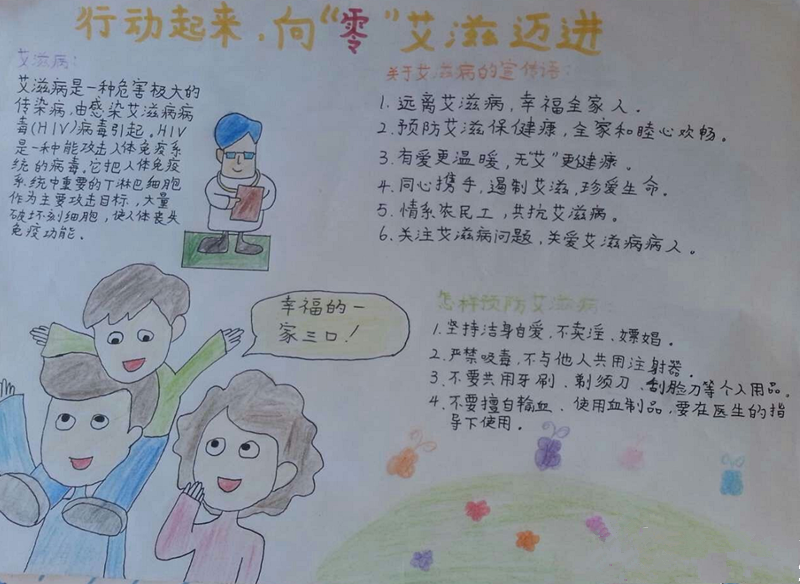 行动起来,向“零”艾滋迈进
艾滋病:
艾滋病是一种危害极大的
传染病,由感染艾滋病病
毒(HIV)病毒引起。HIV
是一种能攻击人体免疫系
统的病毒。它把人体免疫
系统中重要的T淋巴细胞
作为主要攻击目标,大量
破坏该细胞,使人体丧失
免疫功能。
关于艾滋病的宣传语:
1. 远离艾滋病,幸福全家人。
2. 预防艾滋保健康,全家和睦心欢畅。
3. 有爱更温暖,无“艾”更健康。
4. 同心携手,遏制艾滋,珍爱生命。
5. 情系农民工,共抗艾滋病。
6. 关注艾滋病问题,关爱艾滋病病人。
幸福的一
家三口!
怎样预防艾滋病
1. 坚持洁身自爱,不卖淫、嫖娼。
2. 严禁吸毒,不与他人共用注射器。
3. 不要共用牙刷、剃须刀、刮脸刀等个人用品。
4. 不要擅自输血、使用血制品,要在医生的指
导下使用。